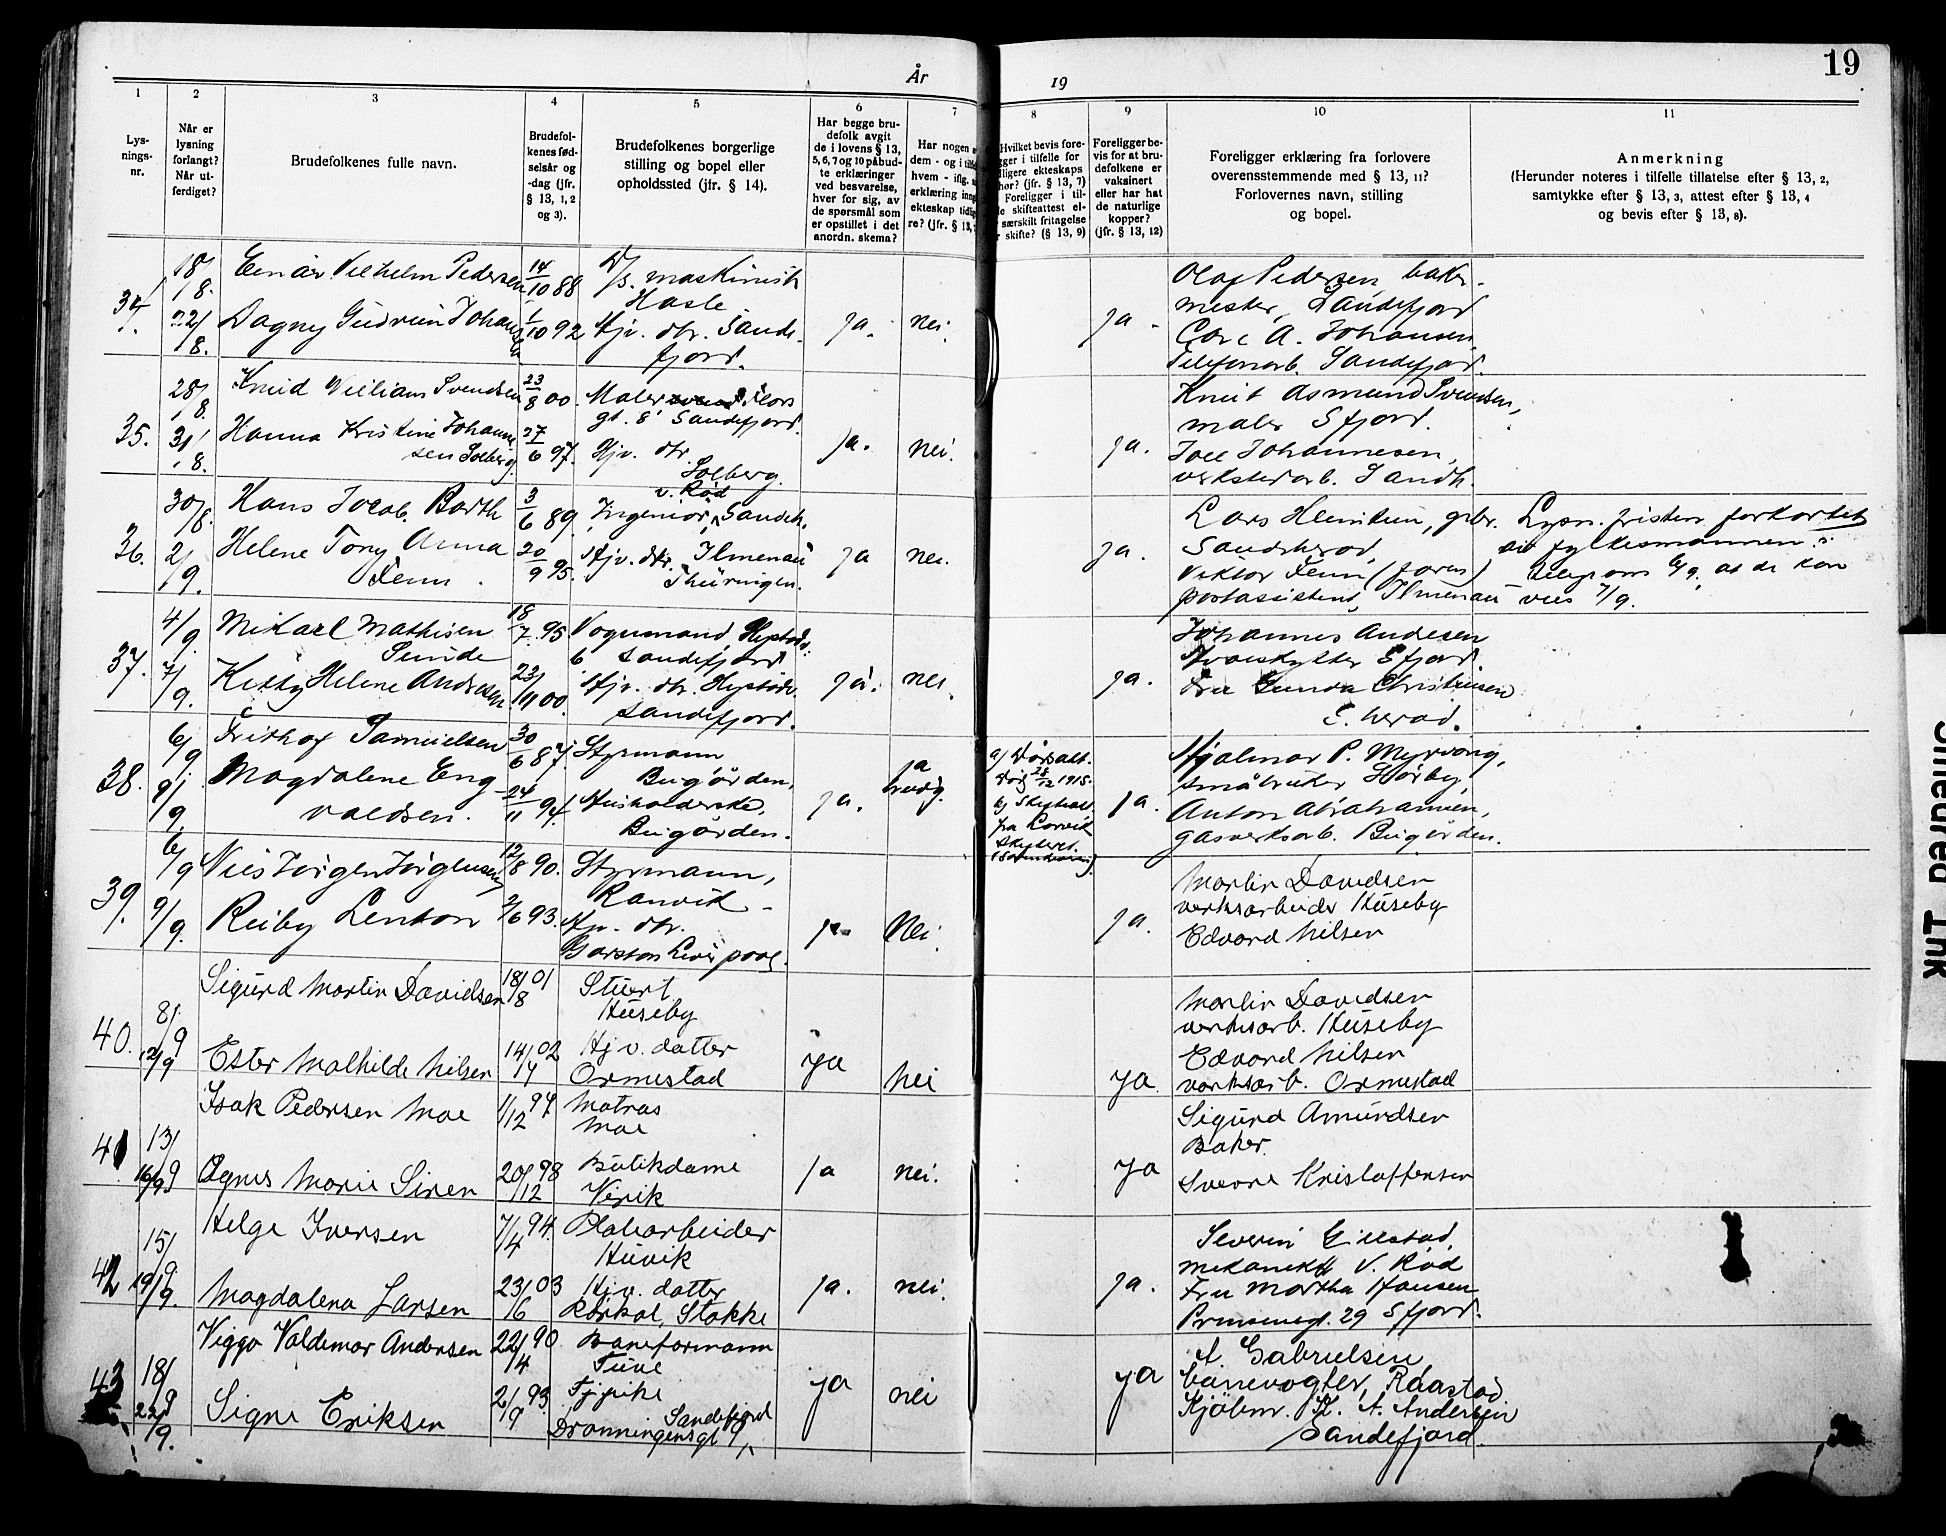 19
År
19
1
2
3
4
5
6
7
8
9
10
11
Lys-
nings-
nr.
Når er
lysning
forlangt?
Når ut-
ferdiget?
Brudefolkenes fulle navn.
Brudefol-
kenes fød-
selsår og
-dag (jfr.
§ 13, 1, 2
og 3).
Brudefolkenes borgerlige
stilling og bopel eller
opholdssted (jfr. § 14).
Har begge bru-
defolk avgit
de i lovens § 13,
5, 6, 7 og 10 påbud-
te erklæringer
ved besvarelse,
hver for sig, av
de spørsmål som
er opstillet i det
anordn. skema?
Har nogen
dem - og i
hvem - iflg.
erklæring
ekteskap
re? (jfr. § 13,
Hvilket bevis fore-
gger i tilfelle for
ligere ekteskaps
hør? (jfr. § 13, 7)
Foreligger i til-
le skifteattest el-
særskilt fritagelse
skifte? (§ 13, 9)
Foreligger be-
vis for at bru-
defolkene er
vaksinert
eller har hat
de naturlige
kopper?
(jfr. § 13, 12)
Foreligger erklæring fra forlovere
overensstemmende med § 13, 11?
Forlovernes navn, stilling
og bopel.
Anmerkning
(Herunder noteres i tilfelle tillatelse efter § 13, 2,
samtykke efter § 13, 3, attest efter § 13, 4
og bevis efter § 13, 8).
34.
18/8.
22/8.
Einar Vilhelm Pedersen
14/10 88
maskinist
Hasle
Dagny Gudrun Johansen
1/10 92
Hjv. dtr. Sande-
fjord.
ja.
nei.
ja.
Olaf Pedersen, baker-
mester, Sandefjord
Carl A. Johansen
Telefonarb. Sandefjord.
35.
28/8.
31/8.
Knud William Svendsen
23/8 00.
Maler
gt. 8 Sandefjord.
Hanna Kristine Johanne
sen Solberg
27/6 97.
Hjv. dtr.
Solberg.
ja.
nei.
ja.
Knut Asmund Svendsen,
maler Sfjord.
Johannesen,
verkstedarb. Sandh.
36.
30/8.
2/9.
Hans Jacob Barth
3/6 89.
v. Rød
Ingeniør, Sandeh.
Helene Tony Anna
Fenn.
20/9 95.
Hjv. dtr. Ilmenau
Thüringen.
ja
nei.
ja.
Lars Henriksen, grbr.
Sandeherod,
Viktor Fenn (faren)
postassistent, Ilmenau
Lysn. fristen forkortet
av fylkesmannen i
telegram 6/9. at de kan
vies 7/9.
37.
4/9.
7/9.
Mikael Mathisen
Sunde
18/7. 95
Vognmand,
6 Sandefjord
Ketty Helene Andresen
23/11 00.
Hjv. dtr.
Sandefjord.
ja.
nei.
ja.
Johannes Andesen
Hvalskytter Sfjord.
Fru Gunda Christensen
S. herad.
38.
6/9
9/9
Frithof Samuelsen
30/6 87.
Styrmann
Bugården,
Magdalene Eng-
valdsen.
24/11 94.
Husholderske,
Bugården.
ja.
ja
brudg.
a) Dødsatt.
Død 28/12 1915.
b) Skifteatt.
fra Larvik
ja.
Hjalmar P. Myrvang,
småbruker Hørby,
Anton Abrahamsen,
gasverksarb. Bugården.
39.
6/9
9/9.
Nils Jørgen Jørgensen
12/8 90.
Styrmann,
Ranvik -
Ruby Lenton
2/6 93.
Hjv. dtr.
Garston Liverpool.
ja
Nei.
ja.
Martin Davidsen
verksarbeider Huseby
Edvard Nilsen
40.
8/9
12/9
Sigurd Martin Davidsen
18/8 01
Stuert
Huseby
Ester Mathilde Nilsen
14/7 02
Hjv. datter
Ormestad
ja
nei
ja
Martin Davidsen
verksarb. Huseby
Edvard Nilsen
verksarb. Ormestad
41
13/9
16/9
Isak Pedersen Moe
1/12 94
Matros
Moe
Agnes Marie Siren
20/12 98
Butikdame
Virik
ja
nei.
ja
Sigurd Amundsen
Baker.
Sverre Kristoffersen
42
15/9
19/9.
Helge Iversen
7/4 94.
Platearbeider
Huvik
Magdalena Larsen
23/6 03
Hjv. datter
Rørkol, Stokke
ja.
nei.
ja.
Severin Gillstad,
mekaniker V. Rød
Fru Martha Hansen
Prinsensgt. 29 Sfjord.
43
18/9
23/9.
Viggo Valdemar Andersen
22/4 90
Baneformann
Tuve
Signe Eriksen
2/9 93
Tjpike
Sandefjord
Dronningensgt 9
ja
nei
ja
A. Gabrielsen,
banevogter, Raastad
Kjøbm. K. A. Andersen
Sandefjord.
Smeared Ink